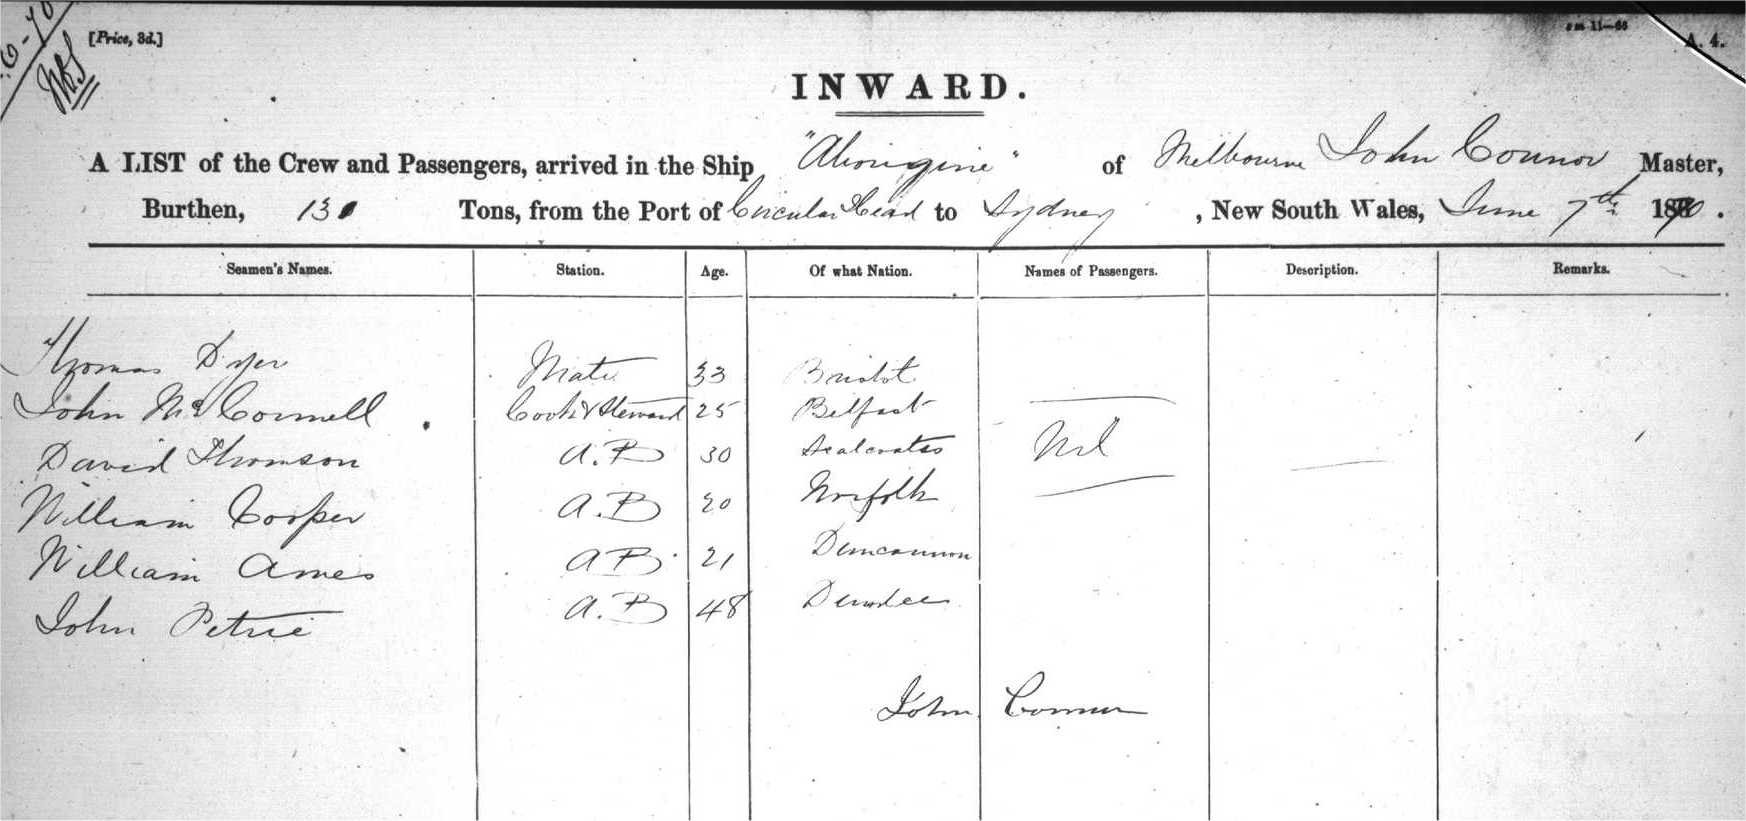 [Price, 3d.]
A. 4.
INWARD.
A LIST of the Crew and Passengers, arrived in the Ship "Aborigine" of Melbourne John Connor Master,
Burthen, 130 Tons, from the Port of Circular Head to Sydney, New South Wales, June 7th 1870.
Seamen's Names. Station. Age. Of what Nation. Names of Passengers. Description. Remarks.
Thomas Dyer Mate 33 Bristol
John McConnell Cook & Steward 25 Belfast
David Thomson A.B 30 Nil
William Cooper A.B 20 Norfolk
William Ames A B 21 Duncannon
John Petrie A.B 48 Dundee
John Connor